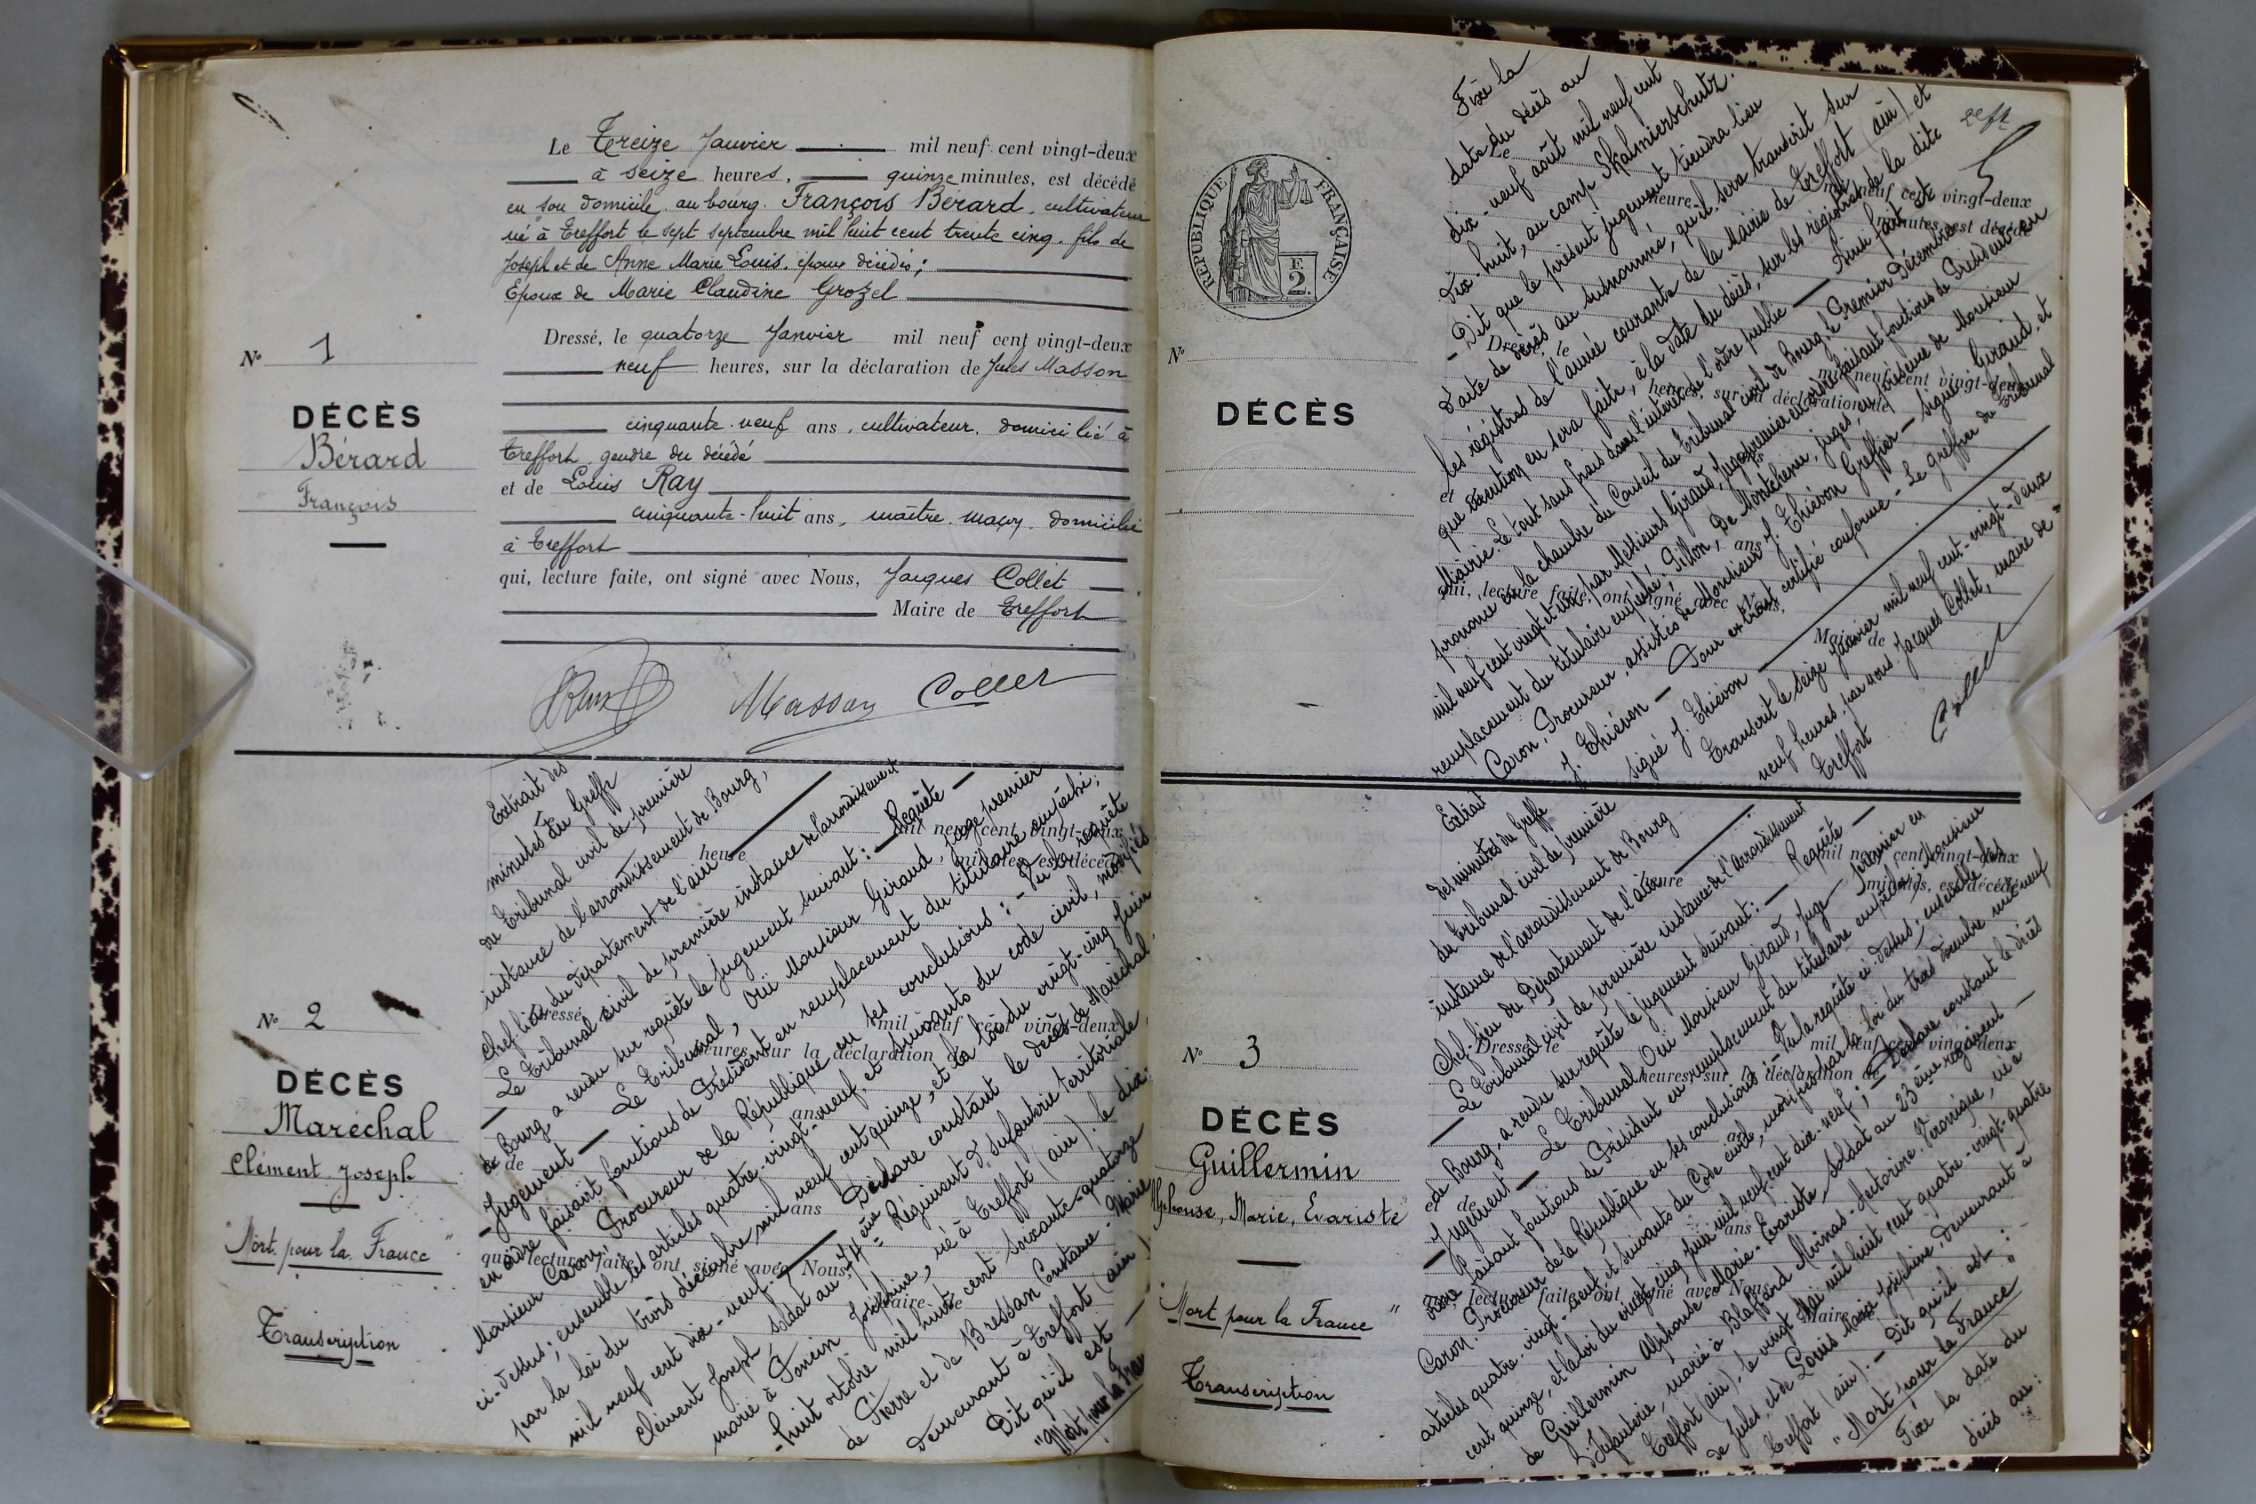 Le Treize Janvier mil neuf cent vingt-deux
à seize heures, quinze minutes, est décédé
en son domicile au bourg. François Bérard, cultivateur
né à Treffort le sept septembre mil huit cent trente cinq, fils de
Joseph et de Anne Marie Louis, époux décédés;
Epoux de Marie Claudine Grozel
Dressé, le quatorze Janvier mil neuf cent vingt-deux
neuf heures, sur la déclaration de Jules Masson
cinquante-neuf ans, cultivateur, domicilié à
Treffort, gendre du décédé
et de Louis Ray
cinquante-huit ans, maître maçon domicilié
à Treffort
qui, lecture faite, ont signé avec Nous, Jacques Collet
Maire de Treffort
Masson Collet
N° 1
DÉCÈS
Bérard
François
N° 2
DÉCÈS
Maréchal
Clément Joseph
"Mort pour la France".
Transcription
Extrait des
minutes du Greffe
du Tribunal civil de première
instance de l'arrondissement de Bourg,
chef-lieu du département de l'ain
Le Tribunal civil de première instance de l'arrondissement
de Bourg a rendu sur requête le jugement suivant: Requête
Jugement Le Tribunal, Ouï Monsieur Giraud, juge premier
en ordre faisant fonctions de Président en remplacement du titulaire empêché;
Monsieur Caron, Procureur de la République en ses conclusions: Vu la requête
ci-dessus; ensemble les articles quatre-vingt-neuf, et suivants du code civil, modifiés
par la loi du trois décembre mil neuf cent quinze, et la loi du vingt-cinq Juin
mil neuf cent dix-neuf; Déclare constant le décès de Maréchal
Clément Joseph, soldat au Régiment d'Infanterie territoriale,
marié à Poncin Joséphine, né à Treffort (ain) le dix-
-huit octobre mil huit cent soixante-quatorze
de Pierre et de Bressan Constance Marie
demeurant à Treffort (ain)
Dit qu'il est
"Mort pour la Fran
RÉPUBLIQUE FRANÇAISE
F.
2.
N°
DÉCÈS
Fixe la
date du décès au
dix-neuf août mil neuf cent
dix-huit, au camp
- Dit que le présent jugement tiendra lieu
d'acte de décès au susnommé, qu'il sera transcrit sur
les régistres de l'année courante de la Mairie de Treffort (ain) et
que mention en sera faite, à la date du décès, sur les régistres de la dite
Mairie. Le tout sans frais dans l'intérêt de l'ordre public Ainsi fait et
prononcé en la chambre du Conseil du Tribunal civil de Bourg, le Premier Décembre
mil neuf cent vingt et un, par Messieurs Giraud, Juge premier en ordre faisant fonctions de Président en
remplacement du titulaire empêché, Gillon, De Montcherie, Juges, en présence de Monsieur
Caron, Procureur, assistés de Monsieur J. Thiévon Greffier - signé: Giraud, et
J. Thiévon - Pour extrait certifié conforme - Le greffier du Tribunal
signé J. Thiévon
Transcrit le seize Janvier mil neuf cent-vingt-deux
neuf heures, par nous Jacques Collet, maire de
Treffort
Collet
N° 3
DÉCÈS
Guillermin
Alphonse, Marie, Evariste
"Mort pour la France"
Transcription
Extrait
des minutes du Greffe
du Tribunal civil de première
instance de l'arrondissement de Bourg
Chef-lieu du Département de l'ain
Le Tribunal civil de première instance de l'arrondissement
de Bourg, a rendu sur requête le jugement suivant: Requête
Jugement Le Tribunal Ouï Monsieur Giraud, Juge premier en
faisant fonctions de Président en remplacement du titulaire empêché; Monsieur
Caron, Procureur de la République en ses conclusions - Vu la requête ci-dessus, ensemble les
articles quatre-vingt-neuf et suivants du Code civil, modifiés par la loi du trois décembre mil neuf
cent quinze, et la loi du vingt-cinq Juin mil neuf cent dix-neuf; Déclare constant le décès
de Guillermin Alphonse Marie-Evariste, soldat au 23ème régiment
d'Infanterie, marié à Victorine Véronique, né à
Treffort (ain), le vingt Mai mil huit cent quatre-vingt-quatre
de Jules, et de Louis Marie Joséphine, demeurant à
Treffort (ain). - Dit qu'il est:
"Mort pour la France"
Fixe la date du
décès au: